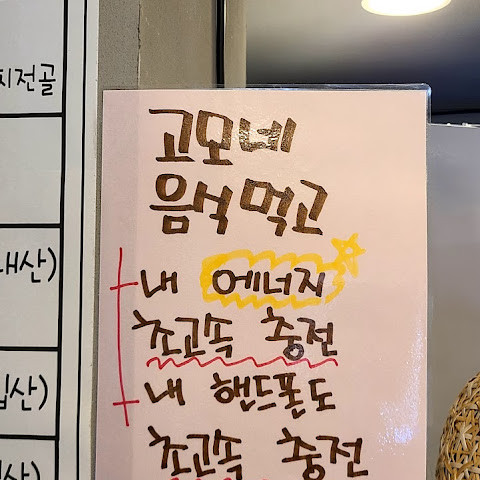 고모네
음식 먹고
내 에너지
초고속 충전
내 핸드폰도
초고속 충전
찌전골
내산)
입산)
산)